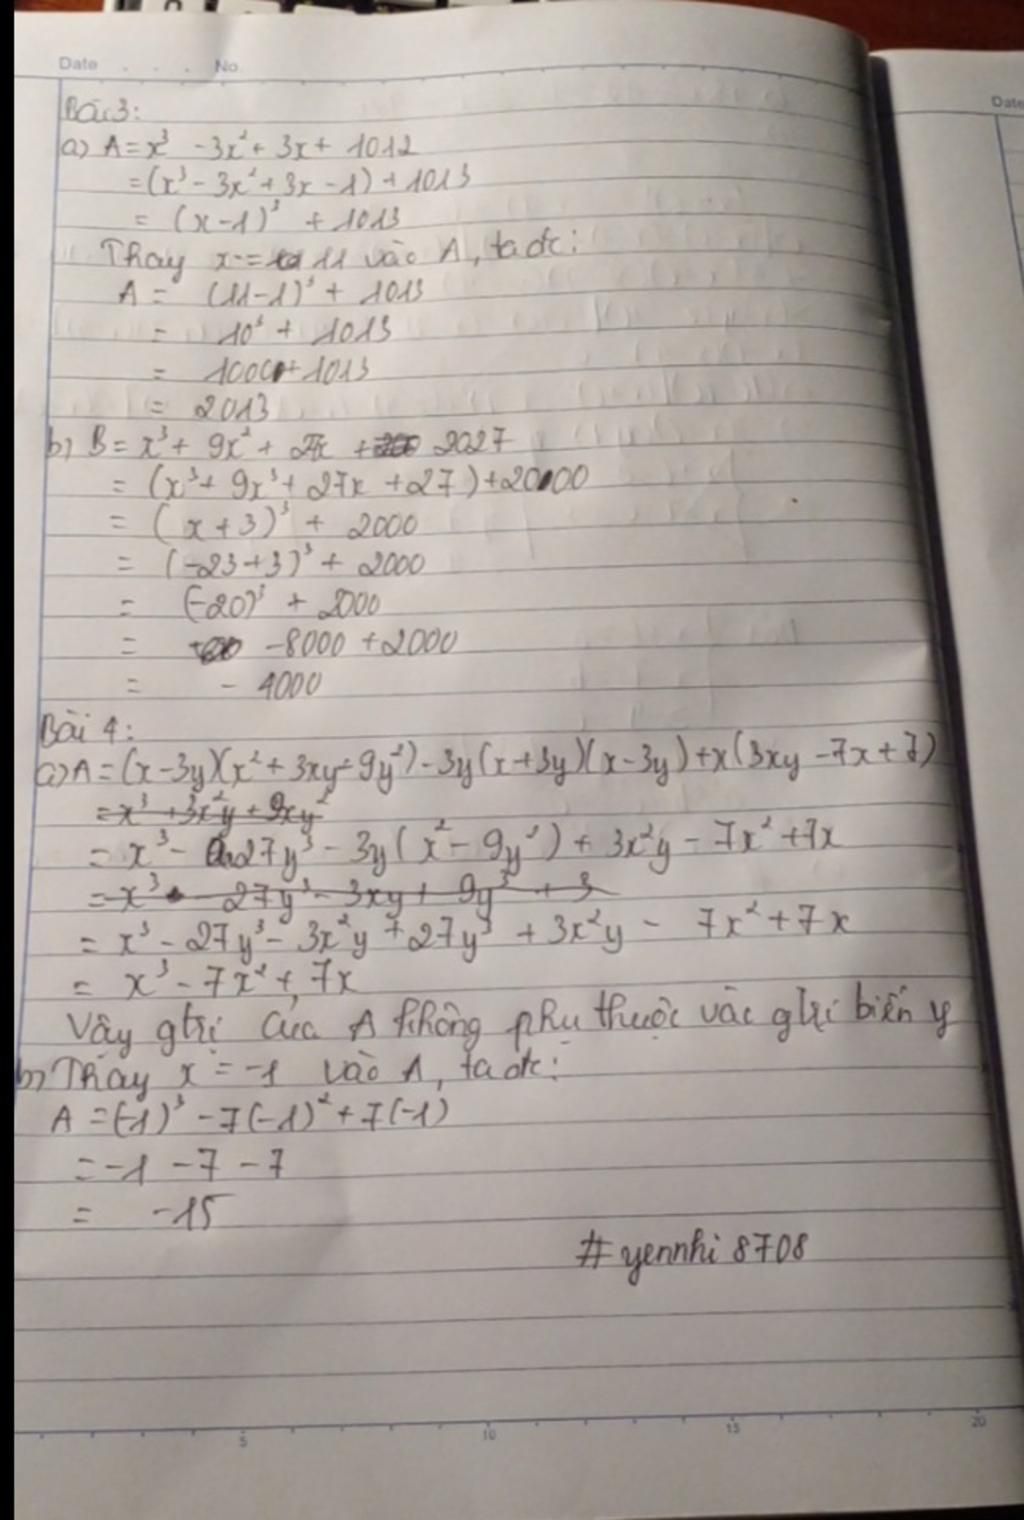 Date . . . No.
Date
Bài 3:
a) A = x³ - 3x² + 3x + 1012
= (x³ - 3x² + 3x - 1) + 1013
= (x - 1)³ + 1013
Thay x = 11 vào A, ta đc:
A = (11 - 1)³ + 1013
= 10³ + 1013
= 1000 + 1013
= 2013
b) B = x³ + 9x² + 27x + 2027
= (x³ + 9x³ + 27x + 27) + 2000
= (x + 3)³ + 2000
= (-23 + 3)³ + 2000
= (-20)³ + 2000
= -8000 + 2000
= - 4000
Bài 4:
a) A = (x - 3y)(x² + 3xy + 9y²) - 3y(x + 3y)(x - 3y) + x(3xy - 7x + 7)
= x³ + 3x²y + 9xy²
= x³ - 27y³ - 3y(x² - 9y²) + 3x²y - 7x² + 7x
= x³ - 27y³ - 3xy + 9y³ + 3
= x³ - 27y³ - 3x²y + 27y³ + 3x²y - 7x² + 7x
= x³ - 7x² + 7x
Vậy gtrị của A không phụ thuộc vào gtrị biến y
b) Thay x = -1 vào A, ta đc:
A = (-1)³ - 7(-1)² + 7(-1)
= -1 - 7 - 7
= -15
#yennhi 8708
5 10 15 20